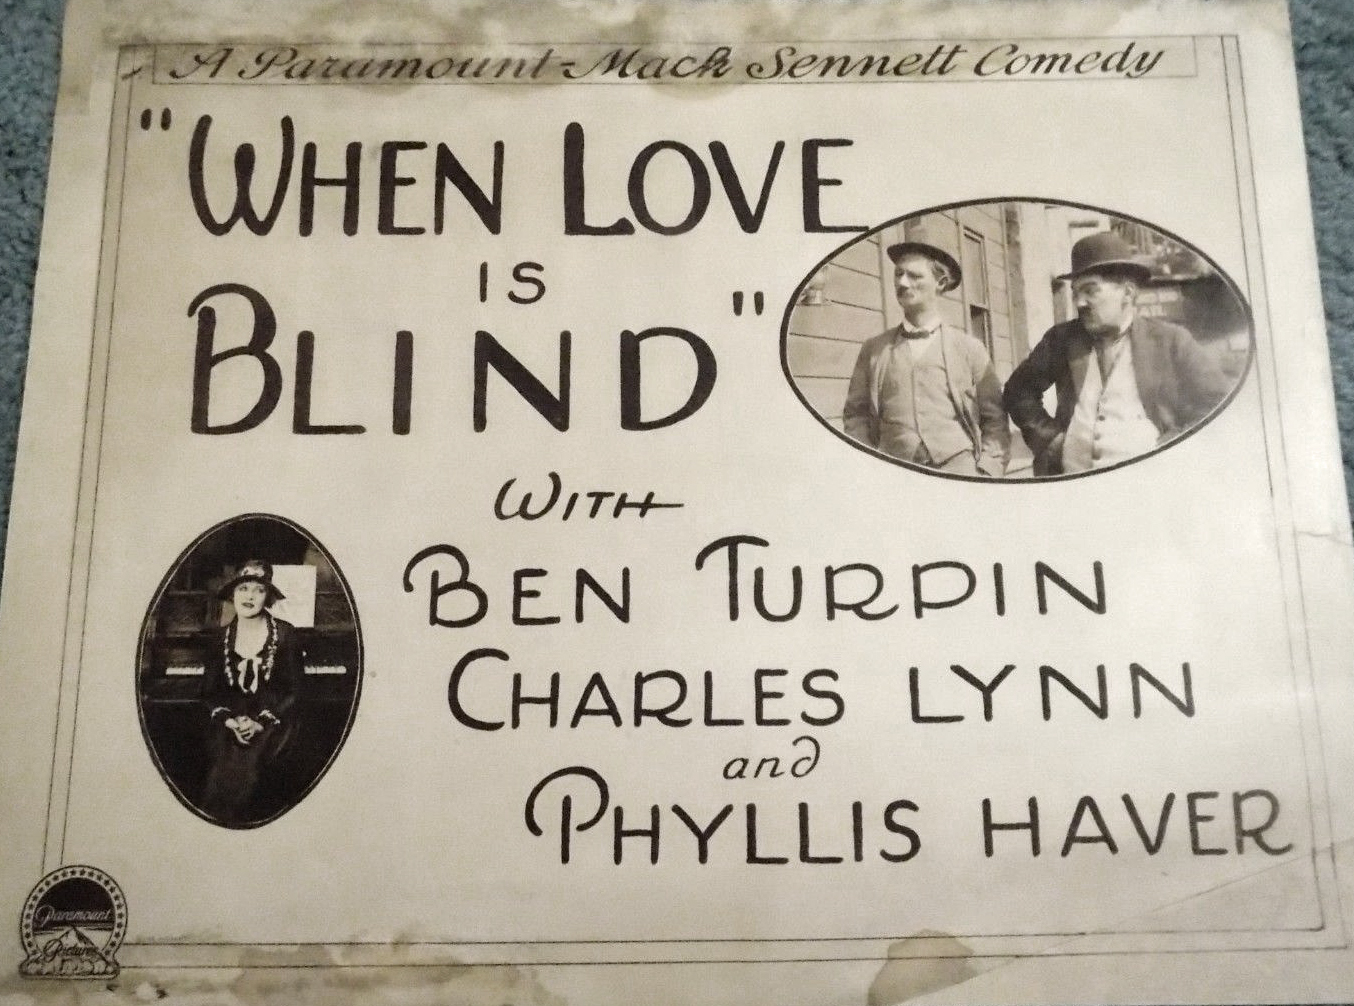 A Paramount-Mack Sennett Comedy
"WHEN LOVE
IS
BLIND"
WITH
BEN TURPIN
CHARLES LYNN
and
PHYLLIS HAVER
Paramount
Pictures